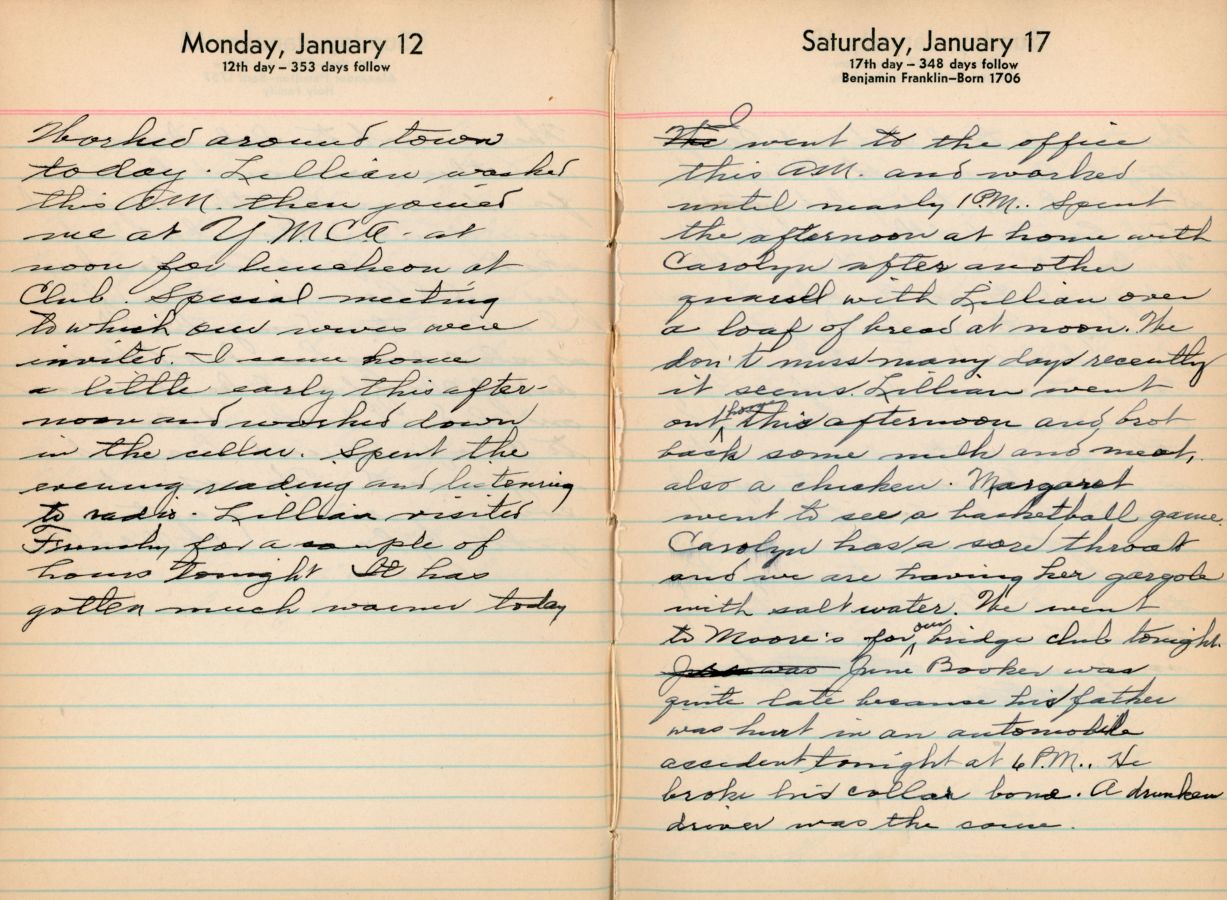 Monday, January 12
12th day – 353 days follow
Worked around town
today. Lillian washed
this A.M. then joined
me at Y.M.C.A. at
noon for luncheon at
Club. Special meeting
to which our wives were
invited. I came home
a little early this after-
noon and worked down
in the cellar. Spent the
evening reading and listening
to radio. Lillian visited
for a couple of
hours tonight It has
gotten much warmer today
Saturday, January 17
17th day – 348 days follow
Benjamin Franklin–Born 1706
I went to the office
this A.M. and worked
until nearly 1 P.M.. Spent
the afternoon at home with
Carolyn after another
quarrell with Lillian over
a loaf of bread at noon. We
don't miss many days recently
it seems. Lillian went
out this afternoon and brot
back some milk and meat,
also a chicken. Margaret
went to see a basketball game.
Carolyn has a sore throat
and we are having her gargole
with salt water. We went
to Moore's for our bridge club tonight.
June was June Booker was
quite late because his father
was hurt in an automobile
accident tonight at 6 P.M.. He
broke his collar bone. A drunken
driver was the cause.